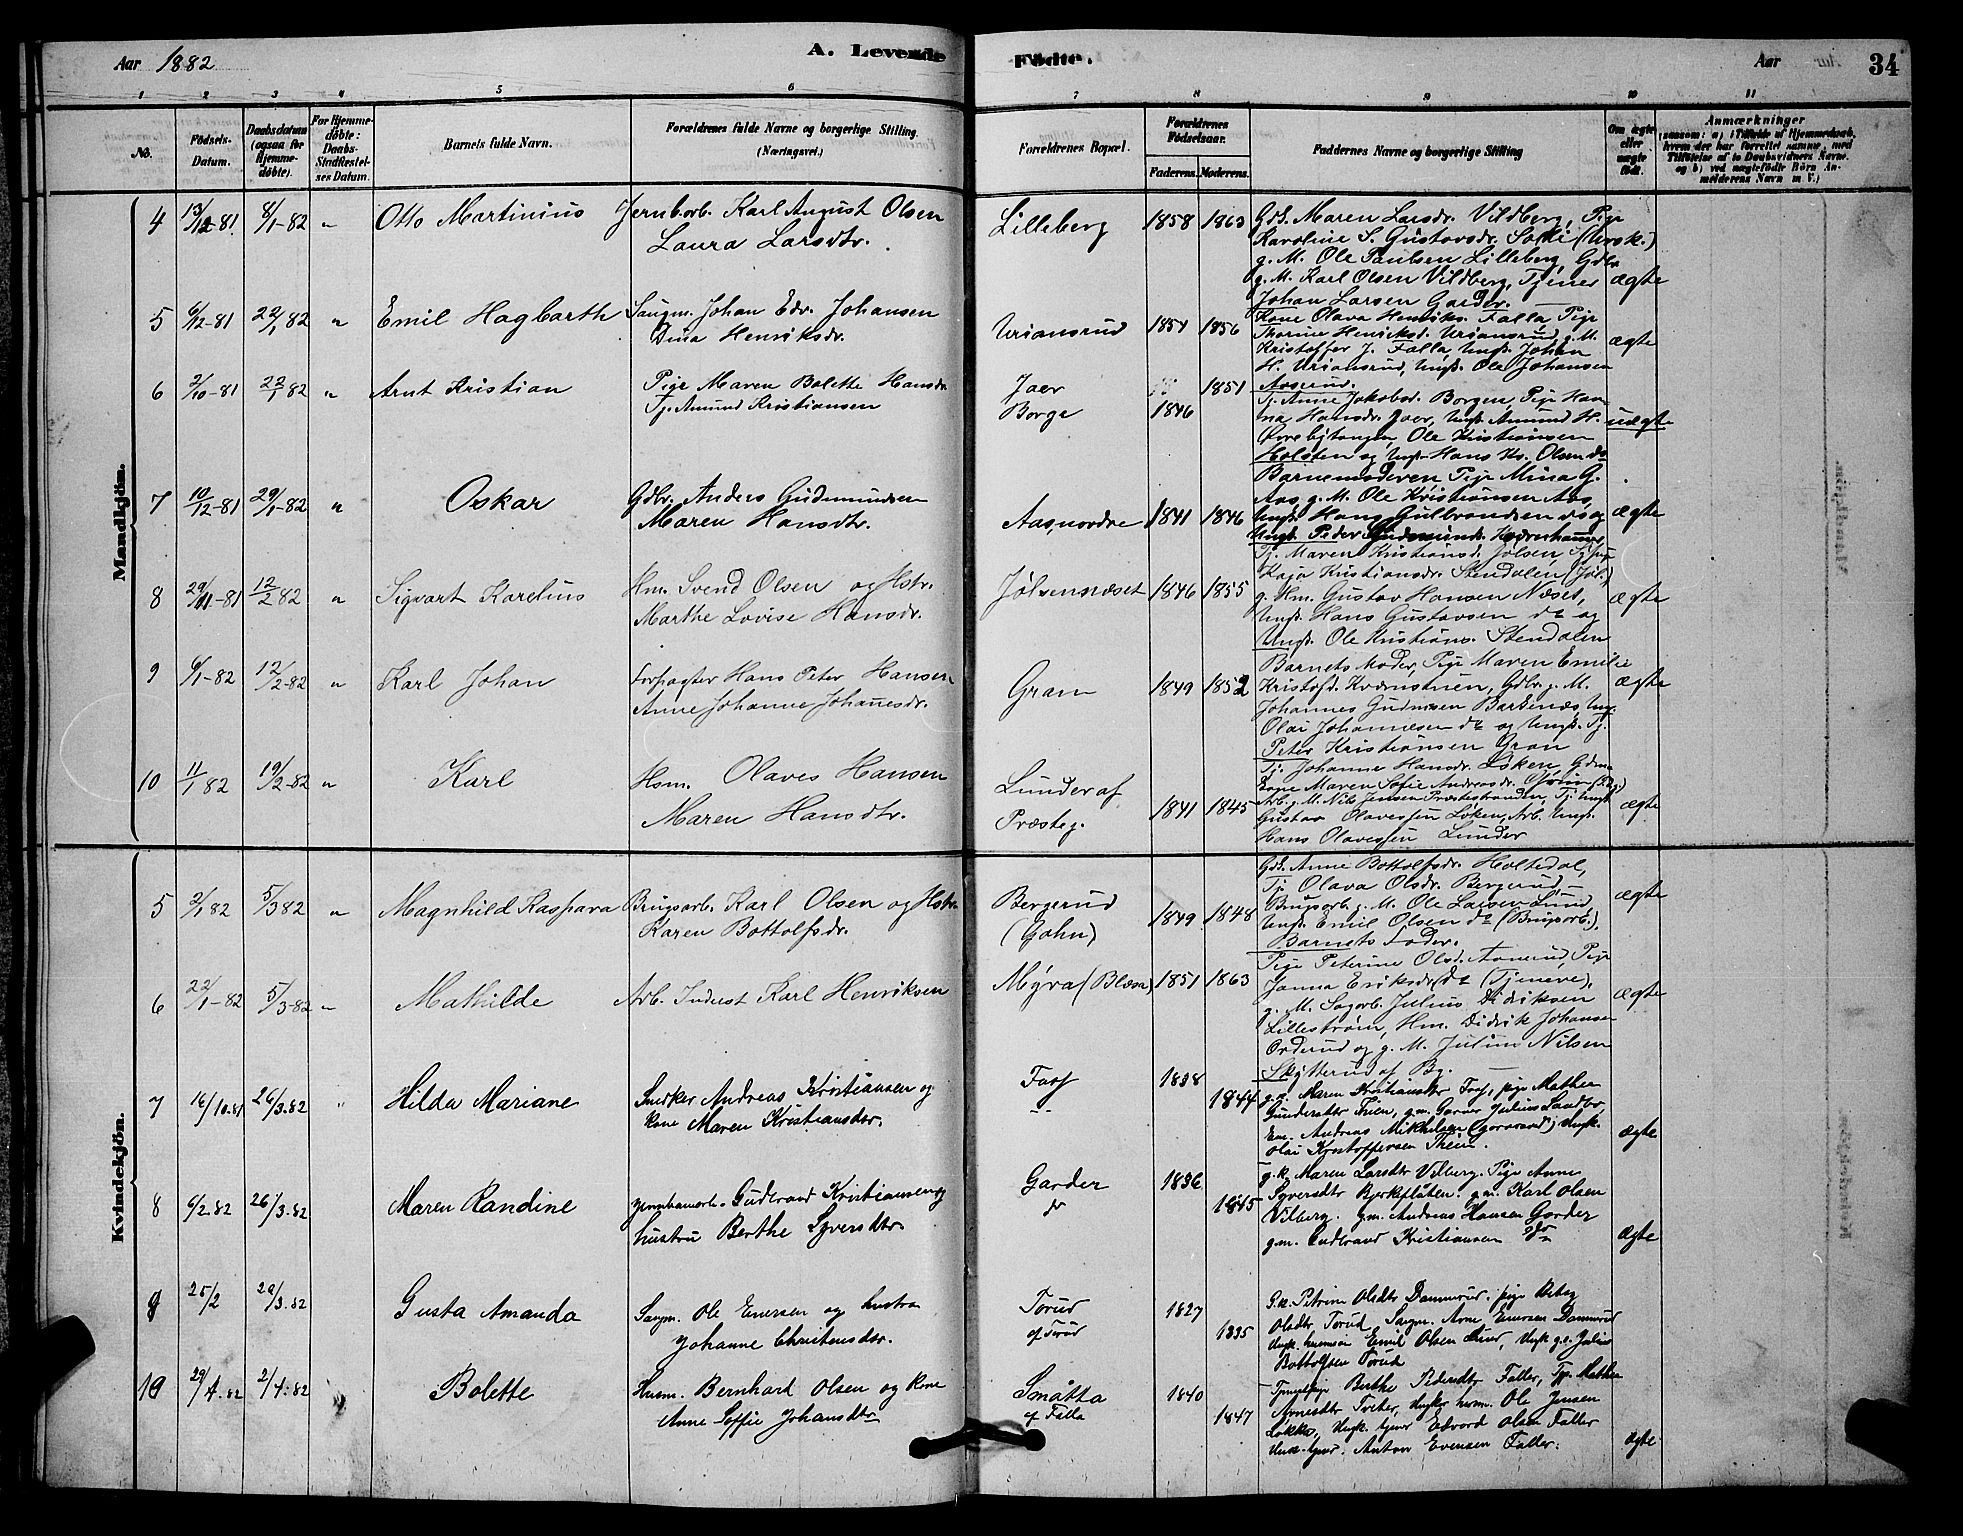 Aar 1882
A. Levende
Fødte.
Aar
34
1 2 3 4 5 6 7 8 9 10 11
No.
Fødsels-
Datum.
Daabsdatum
(ogsaa for
Hjemme-
døbte).
For Hjemme-
døbte:
Daabs-
Stadfæstel-
ses Datum.
Barnets fulde Navn.
Forældrenes fulde Navne og borgerlige Stilling.
(Næringsvei.)
Forældrenes Bopæl.
Forældrenes
Fødselsaar.
Faderens. Moderens.
Faddernes Navne og borgerlige Stilling
Om ægte
eller
uægte
født.
Anmærkninger
(saasom: a) i Tilfælde af Hjemmedaab,
hvem der har forrettet samme, med
Tilføielse af to Daabsvidners Navne.
og b) ved uægtefødte Børn An-
melderens Navn m V.)
Mandkjön.
4 13/12-81 8/1-82 " Otto Martinius Jernb.arb. Karl August Olsen
Laura Larsdtr.
Lilleberg 1858 1863
Gdk. Maren Larsdr. Vildberg, Pige
Karoline S. Gustavsdr.
g. M. Ole Paulsen Lilleberg, Gdbr.
g. M. Karl Olsen Vildberg, Tjener
Johan Larsen Garder.
ægte
5 6/12-81 22/1 82 " Emil Hagbarth Saugm. Johan Edv. Johansen
Dina Henriksdr.
Uriansrud 1851 1856
Kone Olava Henriks. Falla, Pige
Thorine Henriksd. Uriansrud, g. M.
Kristoffer J. Falla, Ungk. Johan
H. Uriansrud, Ungk. Ole Johansen
ægte
6 2/10-81 22/1 82 " Arnt Kristian Pige Maren Bolette Hansdr.
Tj. Amund Kristiansen
Jaer
Borge
1846 1851
Tj. Anne Jakobsd. Borgen, Pige Han-
na Hansdr. Jaer, Ungk. Amund H.
Ole Kristiansen
Holsten og Ungk. Hans Kr. Olsen do
uægte
7 10/12-81 29/1-82 " Oskar Gdbr. Anders Gudmundsen
Maren Hansdtr.
Aas, nordre 1841 1846
Barnemoderen, Pige Mina G.
Aas, g. M. Ole Kristiansen Aas,
Ungk. Hans Gulbrandsen do og
Ungk. Peder Gudmunds.
ægte
8 29/11-81 12/2 82 " Sigvart Karelius Hm. Svend Olsen og Hstr.
Marthe Lovise Hansdr.
Jølsenneset 1846 1855
Tj. Maren Kristiansd. Jølsen, Tj. Pige
Kaja Kristiansdr. Stendalen (Jøl.)
g. Hm. Gustav Hansen Næset,
Ungk. Hans Gustavsen do og
Ungk. Ole Kristians. Stendalen
ægte
9 6/1-82 12/2-82 " Karl Johan Forpagter Hans Peter Hansen
Anne Johanne Johannesdr.
Gran 1849 1852
Barnets Moder, Pige Maren Emilie
Kristofd. Kværnstuen, Gdbr. g. M.
Johannes Gudmsen Barknæs, Ung.
Olai Johannesen do og Ungk. Tj.
Peter Kristiansen Gran
ægte
10 11/1 82 19/2-82 " Karl Hsm. Olaves Hansen
Maren Hansdtr.
Lunder af
Præsteg.
1841 1845
Tj. Johanne Hansdr. Løken, Gdm.
Kone Maren Sofie Andreasdr.
Arb. g. M. Nils Jensen Præstestranden, Tj. Ungk.
Gustav Olavessen Løken, Arb. Ungk.
Hans Olavessen Lunder
ægte
Kvindekjön.
5 2/1 82 5/3 82 " Magnhild Kaspara Brugsarb. Karl Olsen og Hstr.
Karen Bottolfsdr.
Bergerud
(Gahn)
1849 1848
Gdk. Anne Bottolfsdr. Holtedal,
Tj. Olava Olsdr. Bergerud,
Brugsarb. g. M. Ole Larsen Lund,
Ungk. Emil Olsen do (Brugsarb.),
Barnets Fader.
ægte
6 22/1-82 5/3-82 " Mathilde Arb. Inderst Karl Henriksen
Myra (Blæsn) 1851 1863
Pige Peterine Olsd. Asnerud, Pige
Janna Eriksdr. do (Tjenere),
g. M. Sagarb. Julius Didriksen
Lillestrøm, Hm. Didrik Johansen
Orderud og g. M. Julius Nilsen
Skytterud af By.
ægte
7 16/10.81 26/3.82 " Hilda Mariane Snedker Andreas Kristiansen og
kone Maren Kristiansdtr.
1838 1844
g. k. Maren Kristiansdtr. pige Mathea
Gundersdtr Thien, g. m. Gorer Julius Sandbo,
Em. Andreas Mikkelsen Ungk.
Olai Kristoffersen Thien.
ægte
8 6/2.82 26/3.82 Maren Randine Gudbrand Kristiansen og
hustru Berthe Syversdtr.
Garder
do
1836 1845
g. k. Maren Larsdtr Vilberg. Pige Anne
Syversdtr Bjerkeflåten. g. m. Karl Olsen
Vilberg. g. m. Andreas Hansen Garder
g. m. Gudbrand Kristiansen do
Ægte
9 25/2 29/3.82 Gusta Amanda Sagm. Ole Enersen og hustru
Johanne Christensdtr.
Torud
af Torud
1827 1835
G. k. Petrine Olsdtr Dammerud. pige
Olsdtr Torud, Sagm. Arne Enersen Dammerud
Ungk. Emil Olsen Ungk. g. s. Julius
Bottolfsen Torud
10 29/1.82 2/4.82 Bolette Husm. Bernhard Olsen og kone
Anne Soffie Johansdtr
Småtta
af Falla
1840 1847
Tjenestepige Berthe Pedersdtr Faller, Tjp. Mathea
Arnesdtr Ungkr. herm. Ole Jensen
Løkka, Ungk. tjener Edvard Olsen Faller
Ungk. tjener Anton Evensen Faller.
ægte